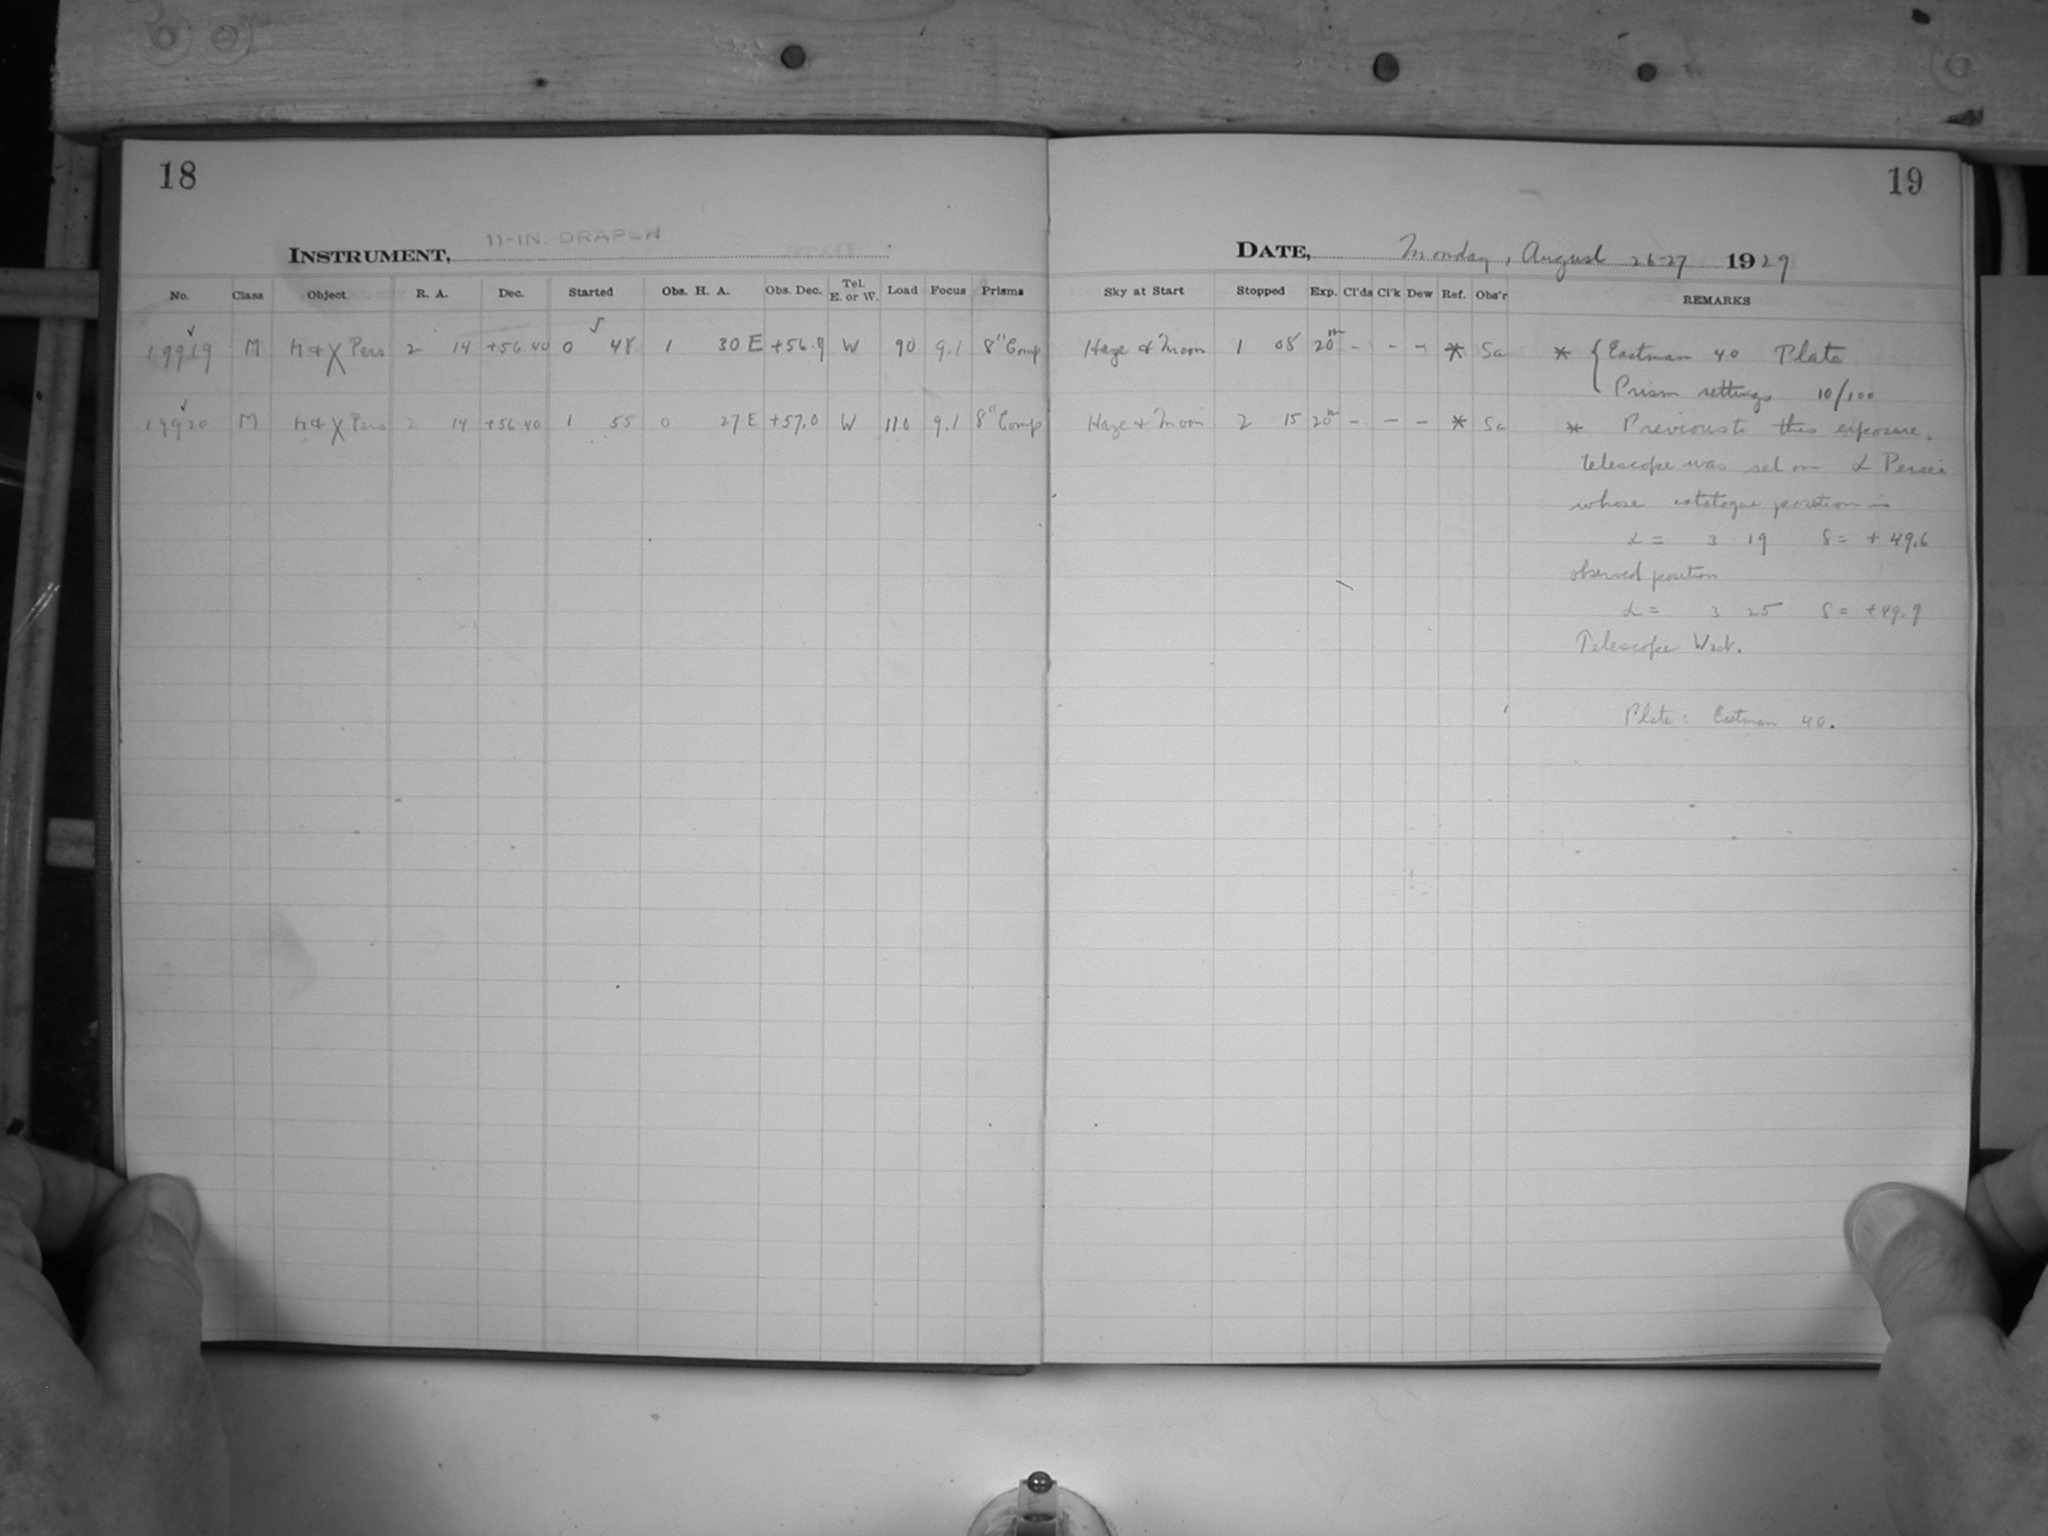 18
INSTRUMENT, 11-IN. DRAPER
No. Class Object R. A. Dec. Started Obs. H. A. Obs. Dec. Tel. E. or W. Load Focus Prisms
19919 M H + χ Pers 2 14 +56 40 0 48 1 30 E +56.9 W 90 9.1 8" Comp
19920 M H + χ Pers 2 14 +56 40 1 55 0 27 E +57.0 W 110 9.1 8" Comp
19
DATE, Monday, August 26-27 1929
Sky at Start Stopped Exp. Cl'ds Cl'k Dew Ref. Obs'r REMARKS
Haze + Moon 1 08 20m - - - * Sa * { Eastman 40 Plate
Prism settings 10/100
Haze + Moon 2 15 20m - - - * Sa * Previous to this exposure,
telescope was set on α Persei
whose catalogue position is
α = 3 19 δ = + 49.6
observed position
α = 3 25 δ = +49.9
Telescope West.
Plate: Eastman 40.